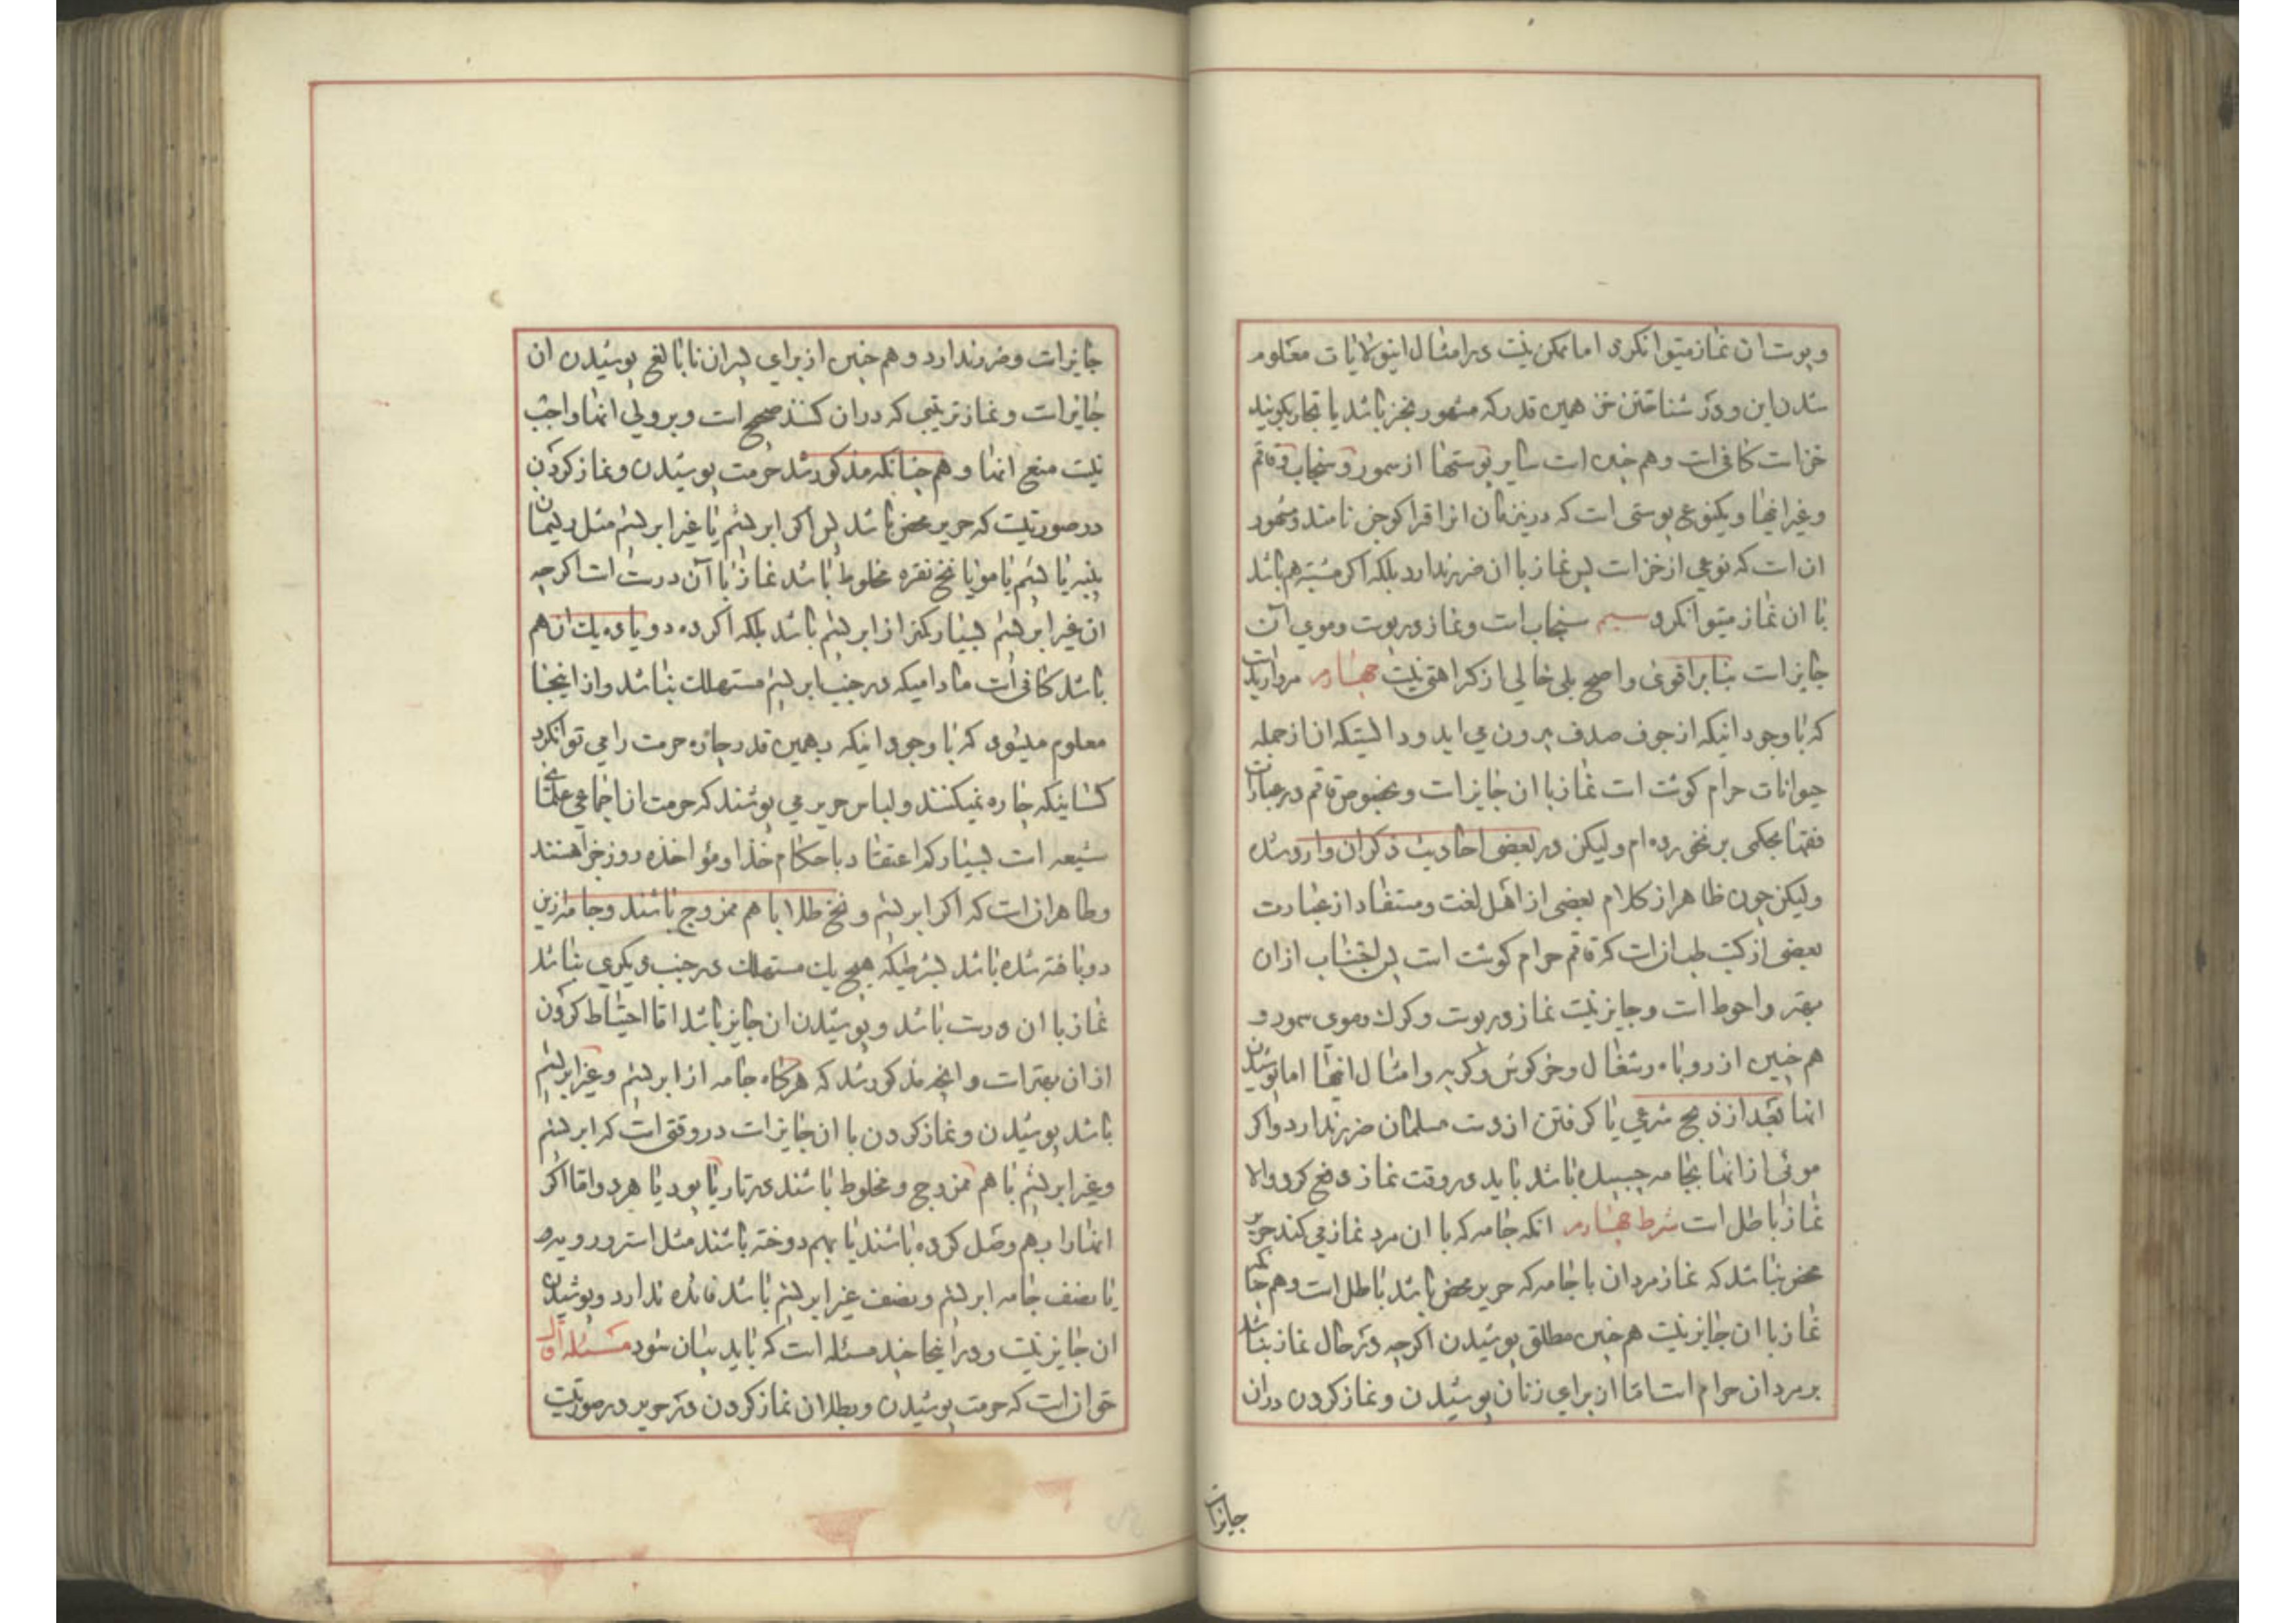 وپوست ان نماز میتوانکرد اما ممکن نیست در امثال اینولایات معلوم
شدن این ودر شناختن خز همین قدر که مشهور بخز باشد یا تجار بکویند
خز است کافی است وهم چنین است سایر پوستها از سمور وسنجاب وقاقم
وغیر انها ویکنوع پوستی است که درین زمان انرا قراکوجن نامند ومشهور
ان است که نوعی از خز است پس نماز با ان ضرر ندارد بلکه اکر مشتبه هم باشد
با ان نماز میتوانکرد سیم سنجاب است ونماز در پوست وموی آن
جایز است بنابر اقوی واصح بلی خالی از کراهتی نیست چهارم مروارید است
که با وجود انیکه از جوف صدف بیرون می اید ودالستیکه ان از جمله
حیوانات حرام کوشت است نماز با ان جایز است وبخصوص قاقم در عبارات
فقها بحکمی برنخورده ام ولیکن در بعضی احادیث ذکر ان وارد شده
ولیکن چون ظاهر از کلام بعضی از اهل لغت ومستفاد از عبارت
بعضی از کتب طب ان است که قاقم حرام کوشت است پس اجتناب از ان
بهتر واحوط است وجایز نیست نماز در پوست وکرک وموی سمور و
هم چنین از روباه وشغال وخرکوش وکربه وامثال انها اما پوشیدن
انها بعد از ذبح شرعی یا کرفتن از دست مسلمان ضرر ندارد واکر
موئی از انها بجامه چسبیده باشد باید در وقت نماز دفع کرد والا
نماز باطل است شرط چهارم انکه جامه که با ان مرد نماز می کند حریر
محض نباشد که نماز مردان با جامه که حریر محض باشد باطل است وهم چنانکه
نماز با ان جایز نیست هم چنین مطلق پوشیدن اکرچه در حال نماز نباشد
بر مردان حرام است اما از برای زنان پوشیدن ونماز کردن در ان
جایز است
جایز است وضرر ندارد وهم چنین از برای پسران نابالغ پوشیدن ان
جایز است ونماز تربیتی که در ان کنند صحیح است وبر ولی انها واجب
نیست منع انها وهم چنانکه مذکور شد حرمت پوشیدن ونماز کردن
در صورتیست که حریر محض باشد پس اکر ابریشم با غیر ابریشم مثل ریسمان
پنبه یا پشم یا مو یا نخ نقره مخلوط باشد نماز با آن درست است اکرچه
ان غیر ابریشم بسیار کمتر از ابریشم باشد بلکه اکر ده دو یا ده یک ان هم
باشد کافی است مادامیکه در جنب ابریشم مستهلک نباشد واز اینجا
معلوم میشود که با وجود اینکه بهمین قدر چاره حرمت را می توانکرد
کسانیکه چاره نمیکنند ولباس حریر می پوشند که حرمت ان اجماعی علمای
شیعه است بسیار کم اعتقاد باحکام خدا ومؤاخذه روز جزا هستند
وظاهر ان است که اکر ابریشم ونخ طلا با هم ممزوج باشند وجامه از این
دو بافته شده باشد بشرطیکه هیچ یک مستهلک در جنب دیکری نباشد
نماز با ان درست باشد وپوشیدن ان جایز باشد اما احتیاط کردن
از ان بهتر است وانچه مذکور شد که هرکاه جامه از ابریشم وغیر ابریشم
باشد پوشیدن ونماز کردن با ان جایز است در وقتی است که ابریشم
وغیر ابریشم با هم ممزوج ومخلوط باشند در تار یا پود یا هر دو واما اکر
انها را بهم وصل کرده باشند یا بهم دوخته باشند مثل استر ورویه
یا نصف جامه ابریشم ونصف غیر ابریشم باشد فائده ندارد وپوشیدن
ان جایز نیست ودر اینجا چند مسئله است که باید بیان شود مسئله اول
ان است که حرمت پوشیدن وبطلان نماز کردن در حریر در صورتیست